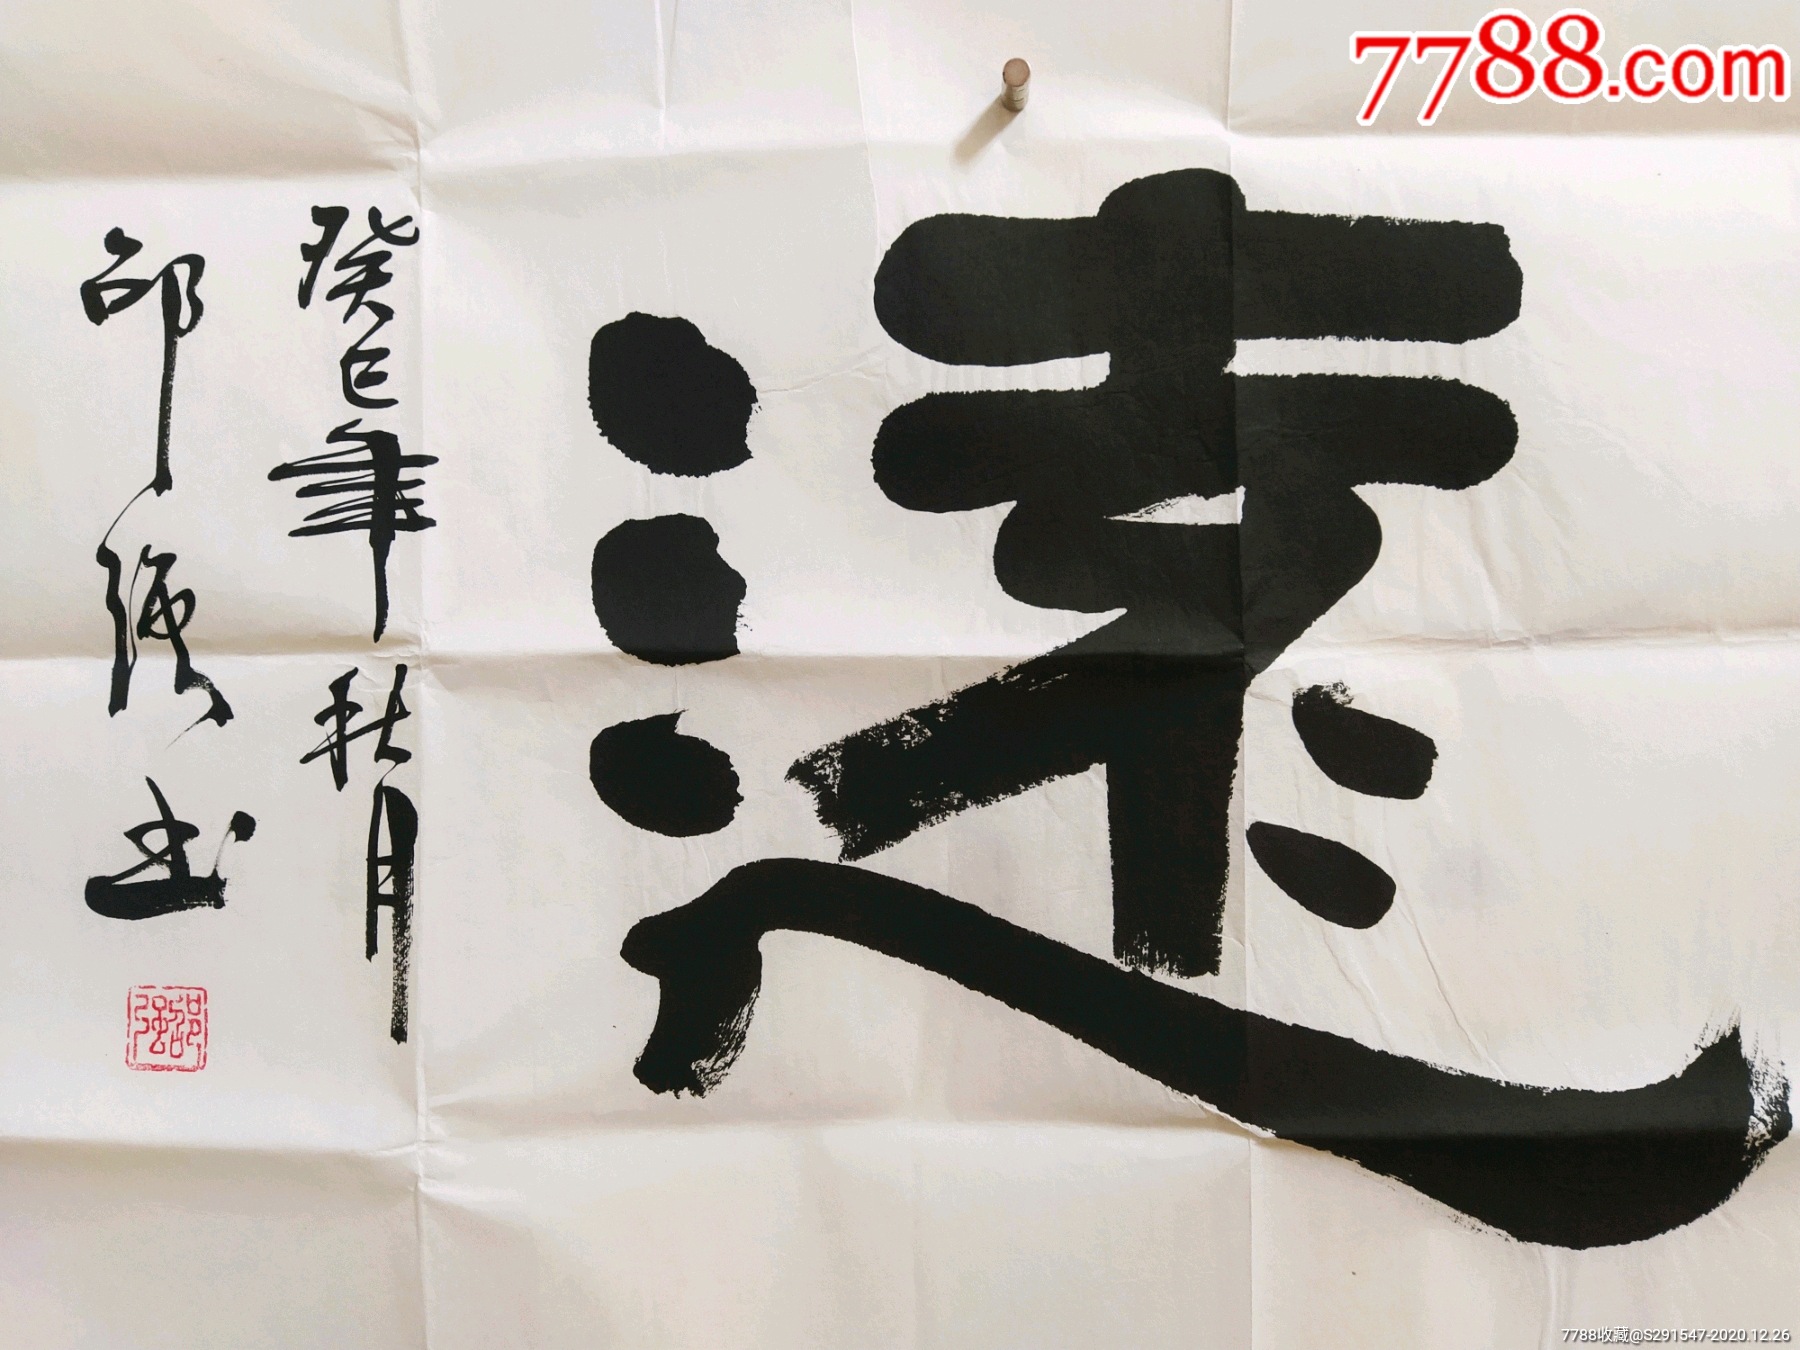 7788.com
遠
癸巳年秋月
邵强书
邵強
7788收藏@S291547-2020.12.26